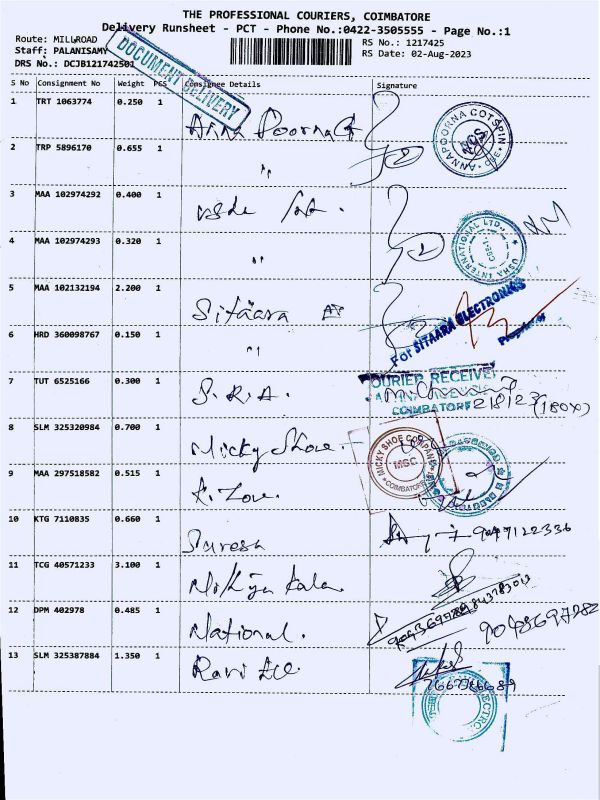 THE PROFESSIONAL COURIERS, COIMBATORE
Delivery Runsheet - PCT - Phone No.:0422-3505555 - Page No.:1
Route: MILLROAD RS No.: 1217425
Staff: PALANISAMY RS Date: 02-Aug-2023
DRS No.: DCJB121742501
DOCUMENT DELIVERY
S No Consignment No Weight PCS Consignee Details Signature
1 TRT 1063774 0.250 1 Anna Poorna
ANNAPOORNA COTSPIN
2 TRP 5896170 0.655 1 "
3 MAA 102974292 0.400 1
4 MAA 102974293 0.320 1 "
USHA INTERNATIONAL LTD.,
5 MAA 102132194 2.200 1 Sitaara
For SITAARA ELECTRONICS
6 HRD 360098767 0.150 1 "
7 TUT 6525166 0.300 1 S.R.A.
COURIER RECEIVE
COIMBATORE 218123 (180X)
8 SLM 325320984 0.700 1 Micky Shoe.
MICKY SHOE COMPANY
MSC
COIMBATORE
9 MAA 297518582 0.515 1
10 KTG 7110835 0.660 1 Suresh
11 TCG 40571233 3.100 1 Kala
12 DPM 402978 0.485 1 National. 9048697982
13 SLM 325387884 1.350 1 Ravi